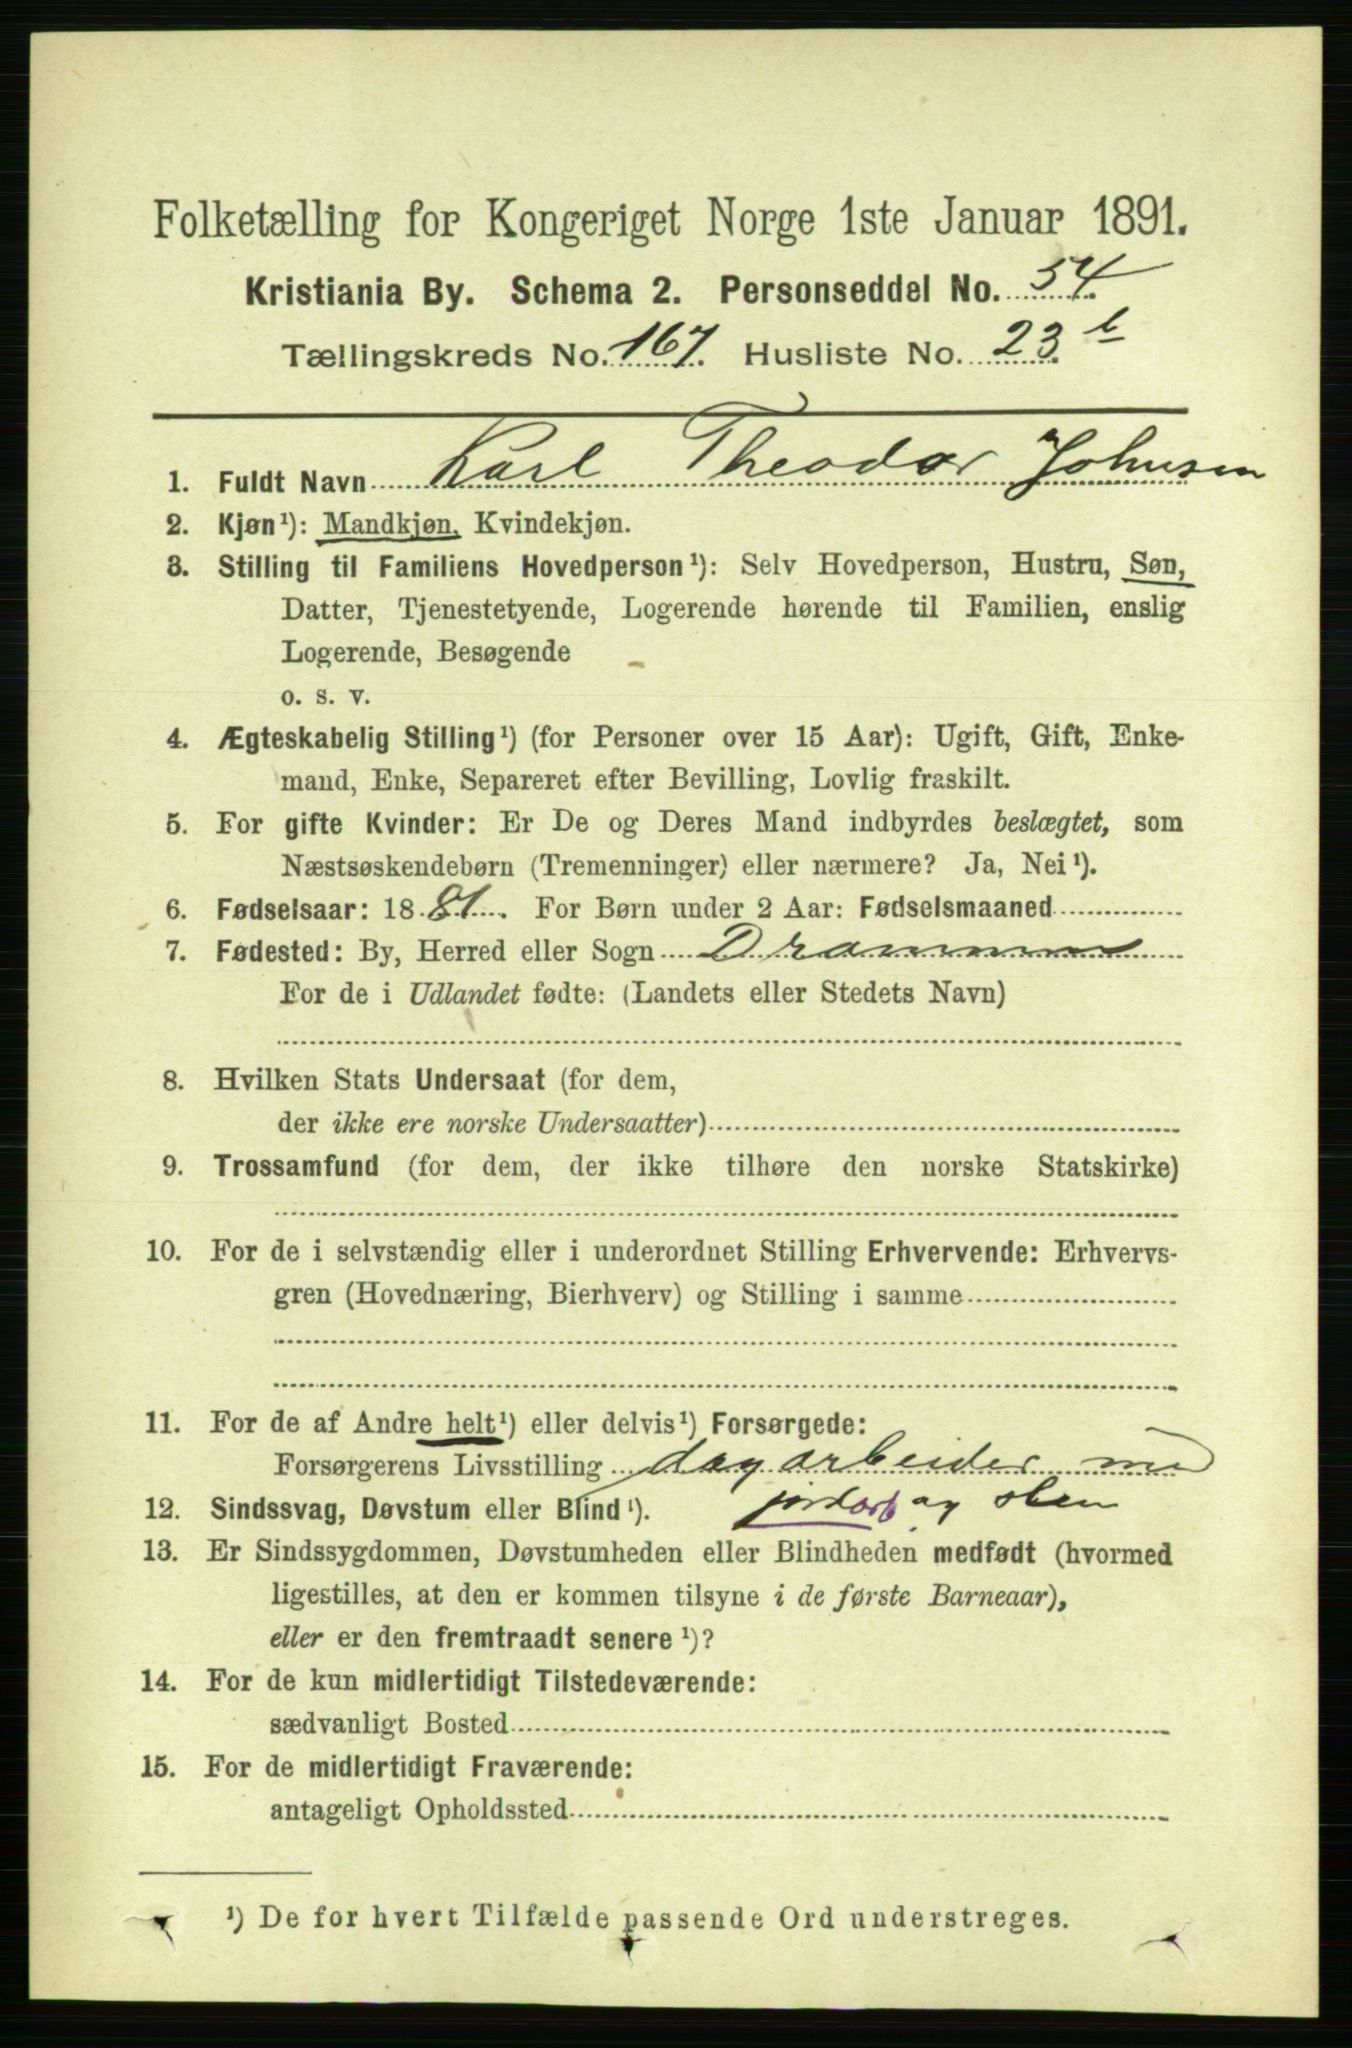 Folketælling for Kongeriget Norge 1ste Januar 1891.
Kristiania By. Schema 2. Personseddel No. 54
Tællingskreds No. 167. Husliste No. 23 b
1. Fuldt Navn Karl Theodor Johnsen
2. Kjøn¹): Mandkjøn, Kvindekjøn.
3. Stilling til Familiens Hovedperson¹): Selv Hovedperson, Hustru, Søn,
Datter, Tjenestetyende, Logerende hørende til Familien, enslig
Logerende, Besøgende
o. s. v.
4. Ægteskabelig Stilling¹) (for Personer over 15 Aar): Ugift, Gift, Enke-
mand, Enke, Separeret efter Bevilling, Lovlig fraskilt.
5. For gifte Kvinder: Er De og Deres Mand indbyrdes beslægtet, som
Næstsøskendebørn (Tremenninger) eller nærmere? Ja, Nei¹).
6. Fødselsaar: 1881. For Børn under 2 Aar: Fødselsmaaned
7. Fødested: By, Herred eller Sogn Drammen
For de i Udlandet fødte: (Landets eller Stedets Navn)
8. Hvilken Stats Undersaat (for dem,
der ikke ere norske Undersaatter)
9. Trossamfund (for dem, der ikke tilhøre den norske Statskirke)
10. For de i selvstændig eller i underordnet Stilling Erhvervende: Erhvervs-
gren (Hovednæring, Bierhverv) og Stilling i samme
11. For de af Andre helt¹) eller delvis¹) Forsørgede:
Forsørgerens Livsstilling dagarbeider med
12. Sindssvag, Døvstum eller Blind¹). jordarb og sten
13. Er Sindssygdommen, Døvstumheden eller Blindheden medfødt (hvormed
ligestilles, at den er kommen tilsyne i de første Barneaar),
eller er den fremtraadt senere¹)?
14. For de kun midlertidigt Tilstedeværende:
sædvanligt Bosted
15. For de midlertidigt Fraværende:
antageligt Opholdssted
¹) De for hvert Tilfælde passende Ord understreges.